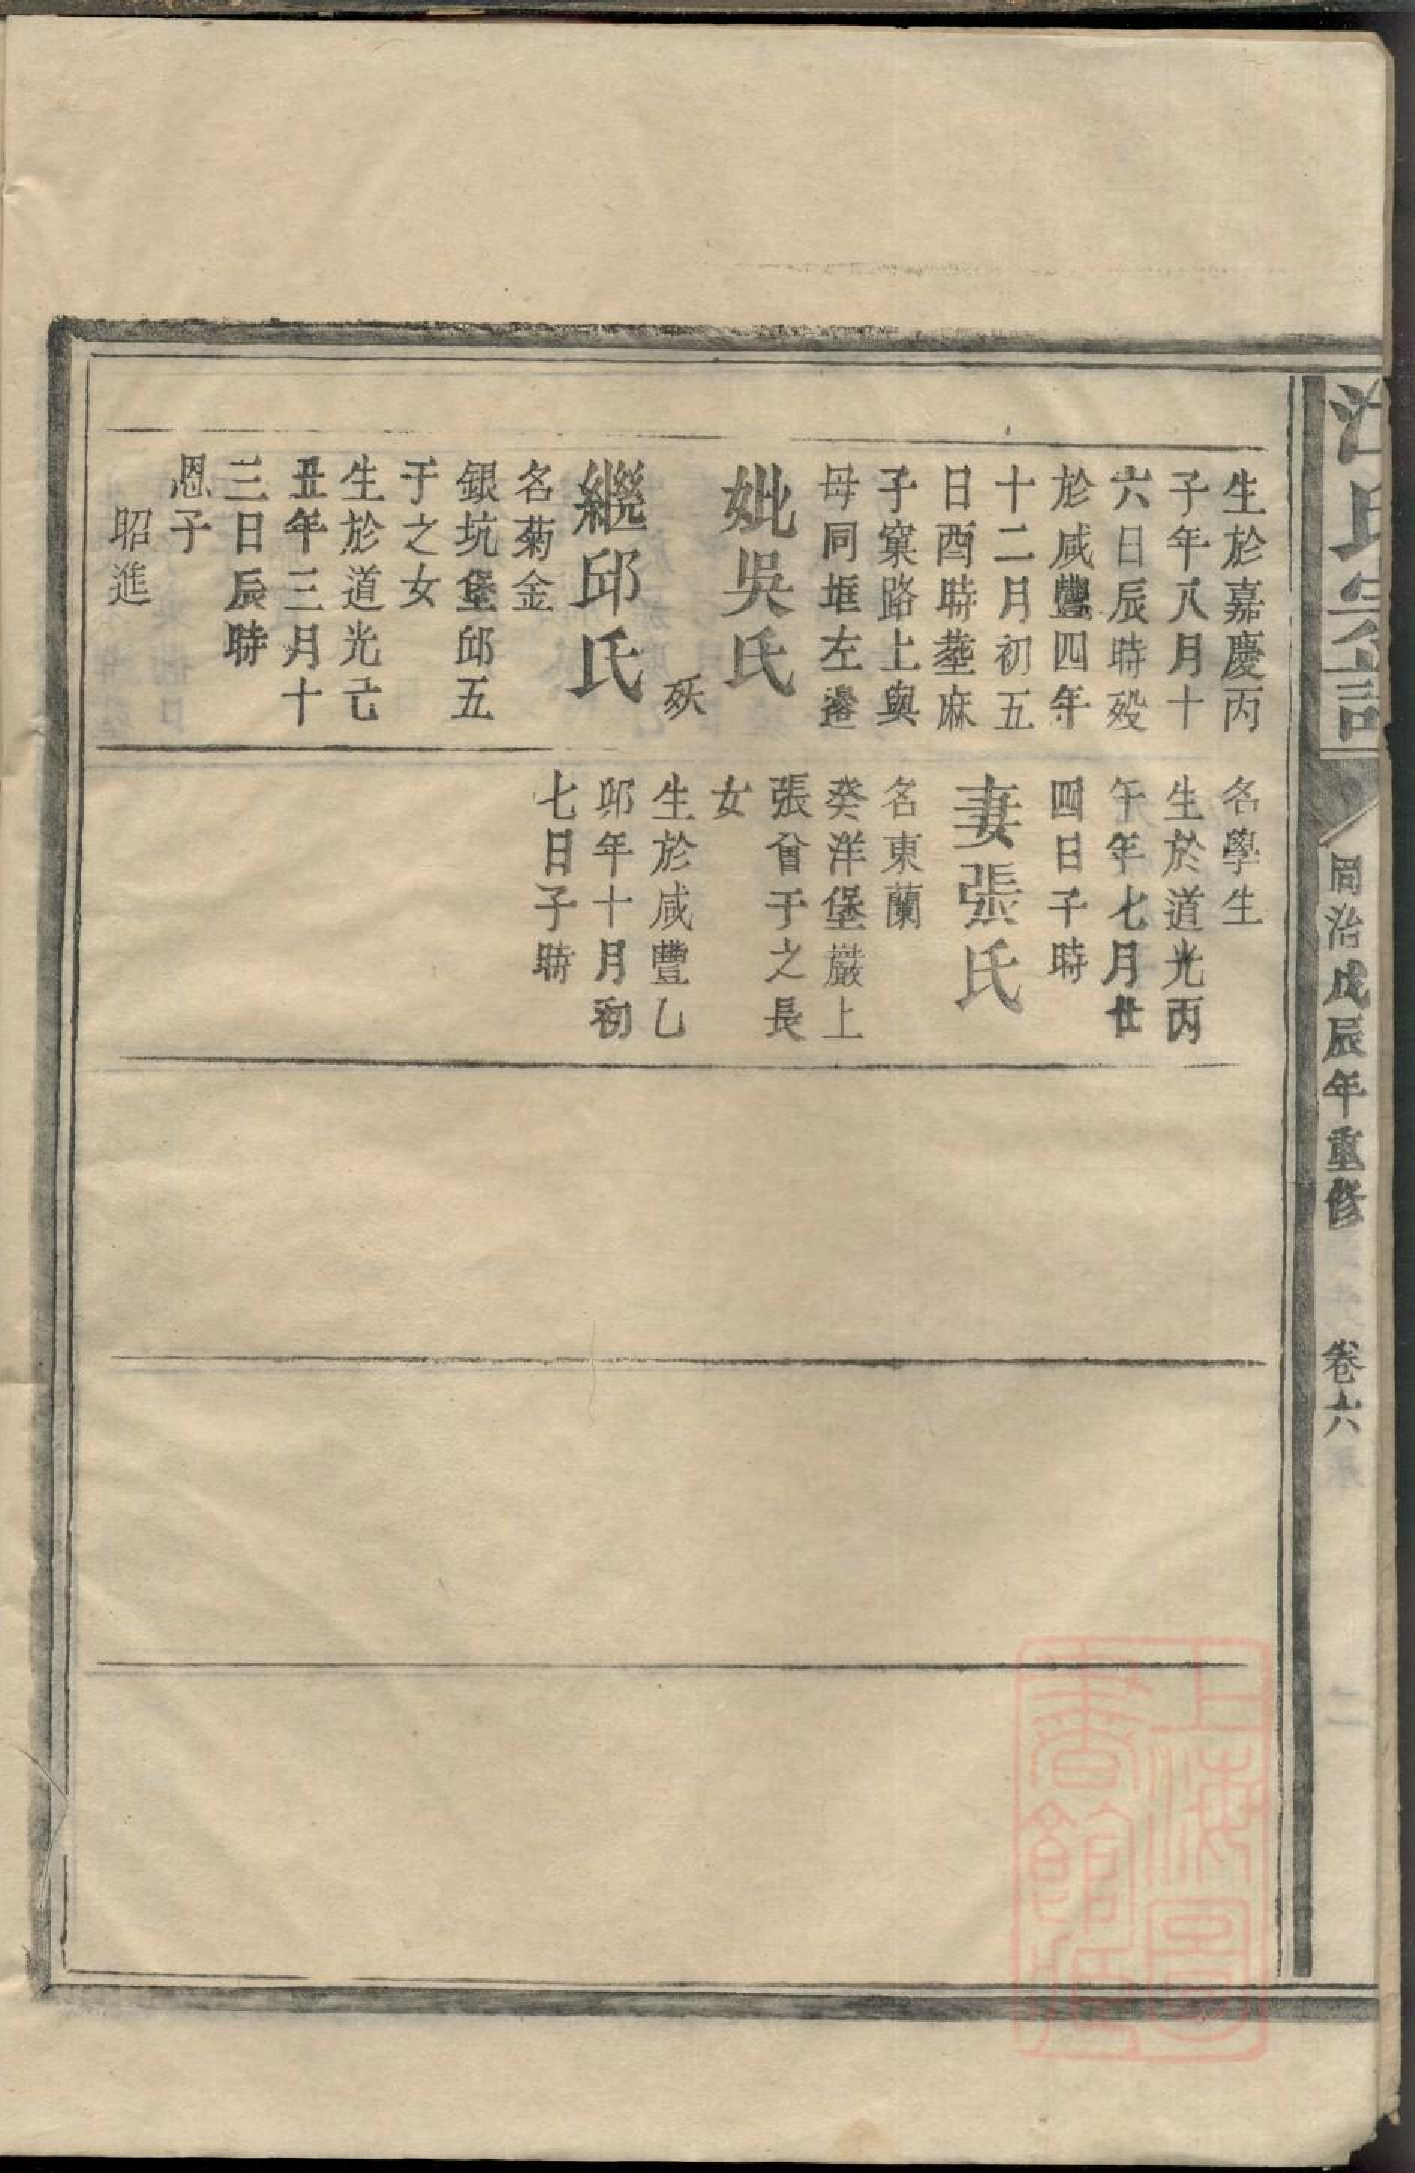 氏宗譜
同治戊辰年重修
卷六
生於嘉慶丙
子年八月十
六日辰時殁
於咸豐四年
十二月初五
日酉時塟麻
子窠路上與
母同堆左邊
妣吳氏
殀
繼邱氏
名菊金
銀坑堡邱五
于之女
生於道光己
丑年三月十
三日辰時
恩子
昭進
名學生
生於道光丙
午年七月廿
四日子時
妻張氏
名東蘭
癸洋堡嚴上
張曾于之長
女
生於咸豐乙
卯年十月初
七日子時
上海图
書館藏